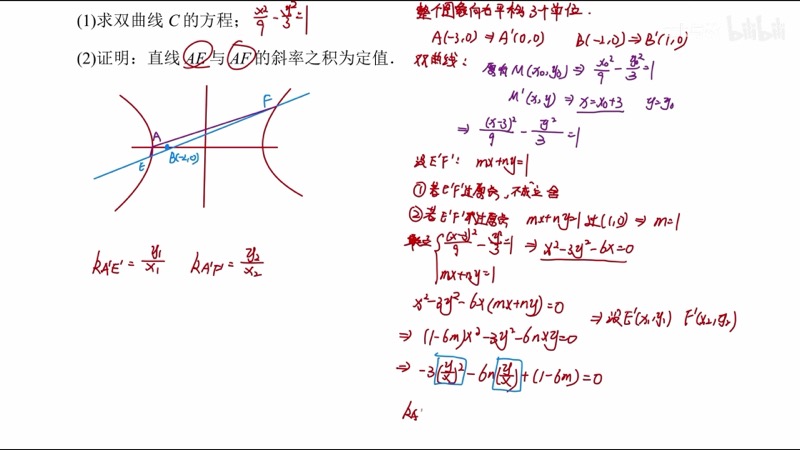 (1)求双曲线 C 的方程；x²/9 - y²/3 = 1
(2)证明：直线 AE 与 AF 的斜率之积为定值．
A
B(-2,0)
E
F
k_A'E' = y₁/x₁  k_A'F' = y₂/x₂
整个图象向右平移3个单位.
A(-3,0) ⇒ A'(0,0)  B(-2,0) ⇒ B'(1,0)
双曲线： 原有M(x₀,y₀) ⇒ x₀²/9 - y₀²/3 = 1
M'(x,y) ⇒ x=x₀+3  y=y₀
⇒ (x-3)²/9 - y²/3 = 1
设E'F'： mx+ny=1
①若E'F'过原点，不成立 舍
②若E'F'不过原点 mx+ny=1过(1,0) ⇒ m=1
联立 { (x-3)²/9 - y²/3 = 1 ⇒ x²-3y²-6x=0
mx+ny=1
x²-3y²-6x(mx+ny)=0
⇒ 设E'(x₁,y₁) F'(x₂,y₂)
⇒ (1-6m)x²-3y²-6nxy=0
⇒ -3(y/x)²-6n(y/x)+(1-6m)=0
k_A'
bilibili